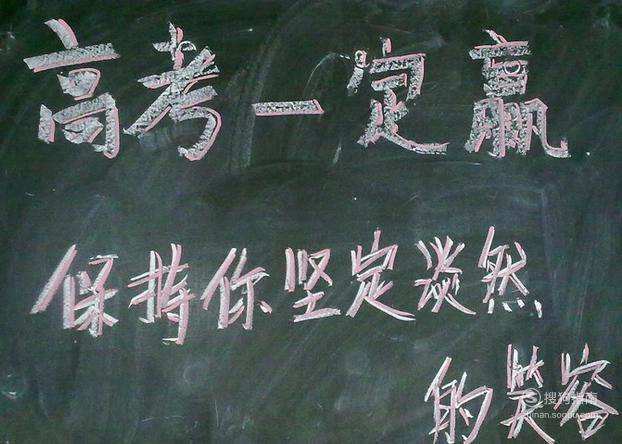 高考一定赢
保持你坚定淡然
的笑容
搜狗指南
zhinan.sogou.com